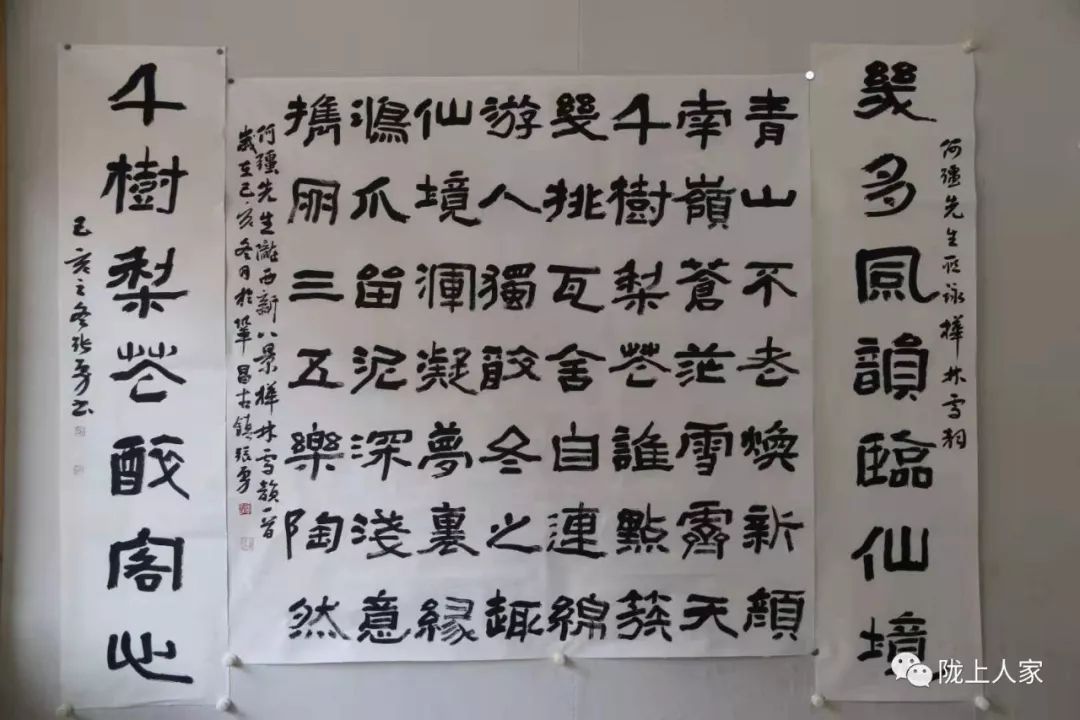 幾多風韻臨仙境
何疆先生詠樺林雪韵
青山不老煥新顏
南嶺蒼茫雪霽天
千樹梨芲誰點簇
幾挑瓦舍自連綿
游人獨冬之趣
仙境渾凝夢裏緣
鴻爪留泥深淺意
攜朋三五樂陶然
何疆先生隴西新八景樺林雪韻一首
歲在己亥冬月於鞏昌古鎮張勇
千樹梨芲醉客心
己亥之冬張勇书
陇上人家